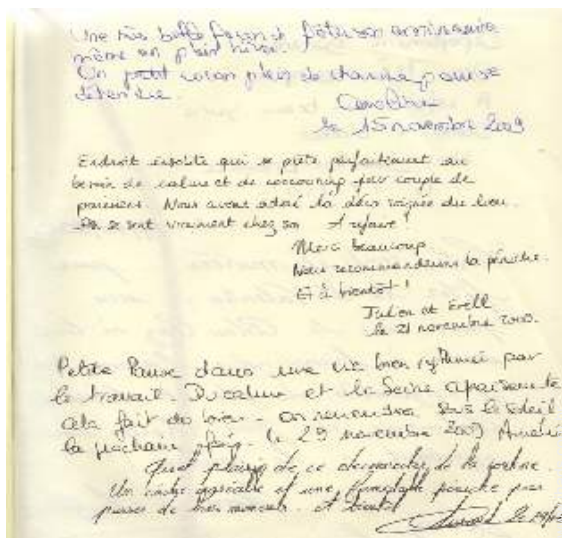 Une très belle façon de fêter son anniversaire
même en plein hiver.
Un petit cocon plein de charme pour se
détendre.
Caroline
le 15 novembre 2009
Endroit insolite qui se prête parfaitement au
besoin de calme et de cocooning pour couple de
parisiens. Nous avons adoré la déco soignée du lieu.
On se sent vraiment chez soi. A refaire!
Merci beaucoup
Nous recommanderons la péniche.
Et à bientôt!
Julien et
le 21 novembre 2009.
Petite Pause dans une vie bien rythmée par
le travail. Du calme et la Seine apaisante
cela fait du bien. on reviendra sous le soleil
la prochaine fois. le 29 novembre 2009
Quel plaisir de ce
Un cadre agréable et une péniche pour
passer de bons moments. A bientôt